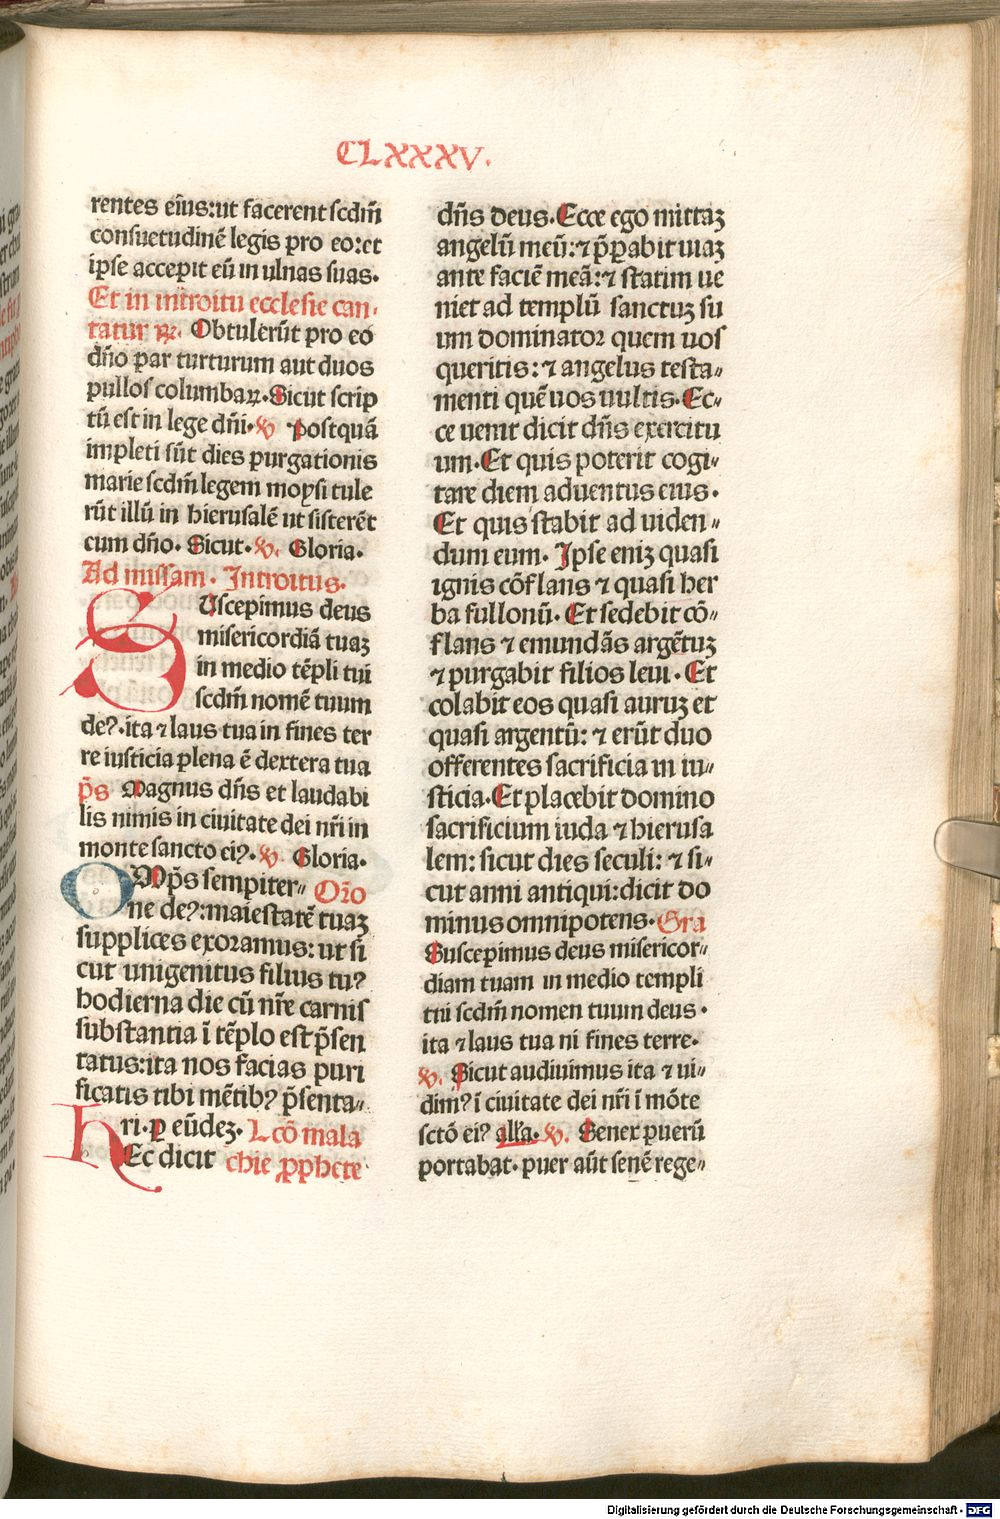 CLXXXV.
rentes eiꝰ:ut facerent ſcdm̄
conſuetudinē legis pro eo:et
ipſe accepit eū in ulnas ſuas.
Et in introitu eccleſie can-
tatur ꝶ. Obtulerūt pro eo
dño par turturum aut duos
pulloſ columbaꝝ. Sicut ſcrip
tū eſt in lege dñi. ꝟ Poſtquā
impleti ſūt dies purgationis
marie ſcdm̄ legem moyſi tule
rūt illū in hieruſalē ut ſiſterēt
cum dño. Sicut. ꝟ. Gloria.
Ad miſſam. Introitus.
SUſcepimus deus
miſericordiā tuaꝫ
in medio tēpli tui
ſcdm̄ nomē tuum
deꝰ. ita ⁊ laus tua in fines ter
re iuſticia plena ē dextera tua
p̄s Magnus dñs et laudabi
lis nimis in ciuitate dei nr̄i in
monte ſancto eiꝰ. ꝟ. Gloria.
OMp̄s ſempiter- Or̄o
ne deꝰ: maieſtatē tuaꝫ
ſupplices exoramus: ut ſi
cut unigenitus filius tuꝰ
hodierna die cū nr̄e carniſ
ſubſtantia ī tēplo eſt p̄ſen
tatus: ita nos facias puri
ficatis tibi mētibꝰ p̄ſenta-
ri. ꝑ eūdeꝫ. Lcō mala
HEc dicit chie ꝓphete
dñs deus. Ecce ego mittaꝫ
angelū meū: ⁊ p̄ꝑabit uiaꝫ
ante faciē meā: ⁊ ſtatim ue
niet ad templū ſanctuꝫ ſu
um dominator quem uoſ
queritis: ⁊ angelus teſta-
menti quē uos uultis. Ec-
ce uenit dicit dñs exercitu
um. Et quis poterit cogi-
tare diem aduentus eius.
Et quis ſtabit ad uiden-
dum eum. Ipſe eniꝫ quaſi
ignis cōflans ⁊ quaſi her
ba fullonū. Et ſedebit cō-
flans ⁊ emundās argētuꝫ
⁊ purgabit filios leui. Et
colabit eos quaſi auruꝫ et
quaſi argentū: ⁊ erūt duo
offerentes ſacrificia in iu-
ſticia. Et placebit domino
ſacrificium iuda ⁊ hieruſa
lem: ſicut dies ſeculi: ⁊ ſi-
cut anni antiqui: dicit do
minus omnipotens. Gra
Suſcepimus deus miſericor-
diam tuam in medio templi
tui ſcdm̄ nomen tuum deus.
ita ⁊ laus tua ni fines terre.
ꝟ. Sicut audiuimus ita ⁊ ui-
dimꝰ ī ciuitate dei nr̄i ī mōte
ſctō eiꝰ all̄a. ꝟ. Senex puerū
portabat. puer aūt ſenē rege-
Digitalisierung gefördert durch die Deutsche Forschungsgemeinschaft - DFG